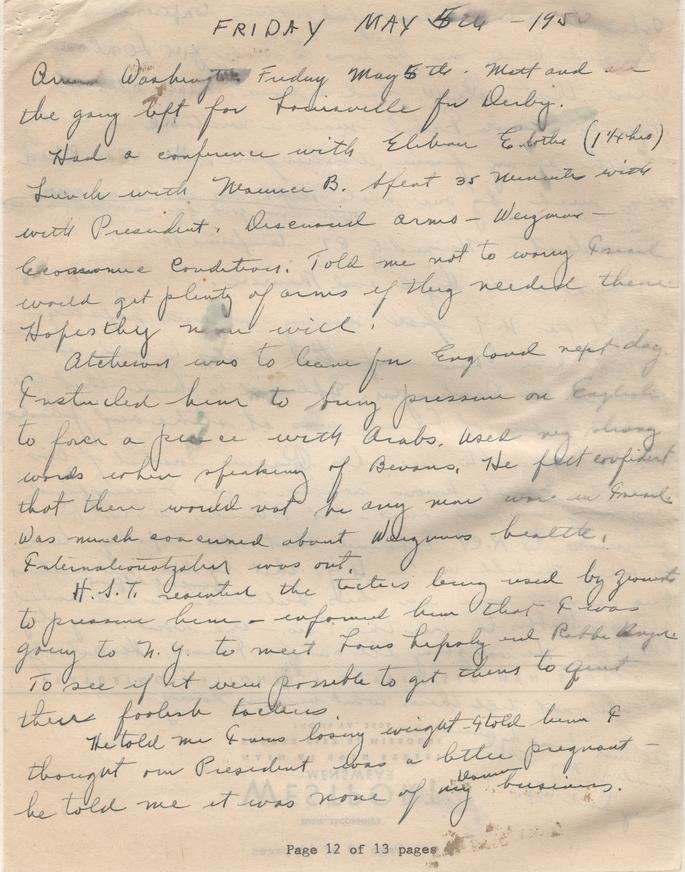 FRIDAY MAY 5th - 1950
Washington Friday May 5th. Matt and
the gang left for Louisville for Derby.
Had a conference with Eliahu E. (1 1/4 hrs)
Lunch with Maurice B. Spent 35 minutes with
with President. Discussed arms - Weizman -
Economic Conditions. Told me not to worry Israel
would get plenty of arms if they needed them
Hopes they never will.
Atcheson was to leave for England next day.
Instructed him to bring pressure on English
to force a peace with Arabs. Used very strong
words when speaking of Bevans. He felt confident
that there would not be any more war in Israel
Was much concerned about Weizmans health.
Internationalization was out.
H.S.T. resented the tactics being used by Zionists
to pressure him - informed him that I was
going to N.Y. to meet Louis Lipsky and Rabbi
To see if it were possible to get them to quit
their foolish tactics
He told me I was losing weight - I told him I
thought our President was a little pregnant -
he told me it was none of my damn business.
WESTPORT
MENSWEAR
Page 12 of 13 pages